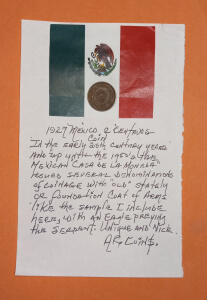 1927 Mexico, 2 Centavos
Coin
In the early 20th century years
and up until the 1950's the
Mexican Casa de la Moneda
issued several denominations
of coinage with "old" stately
or Foundation Coat of Arms
like the sample I include
here, with an Eagle preying
the Serpent. Unique and Nice.